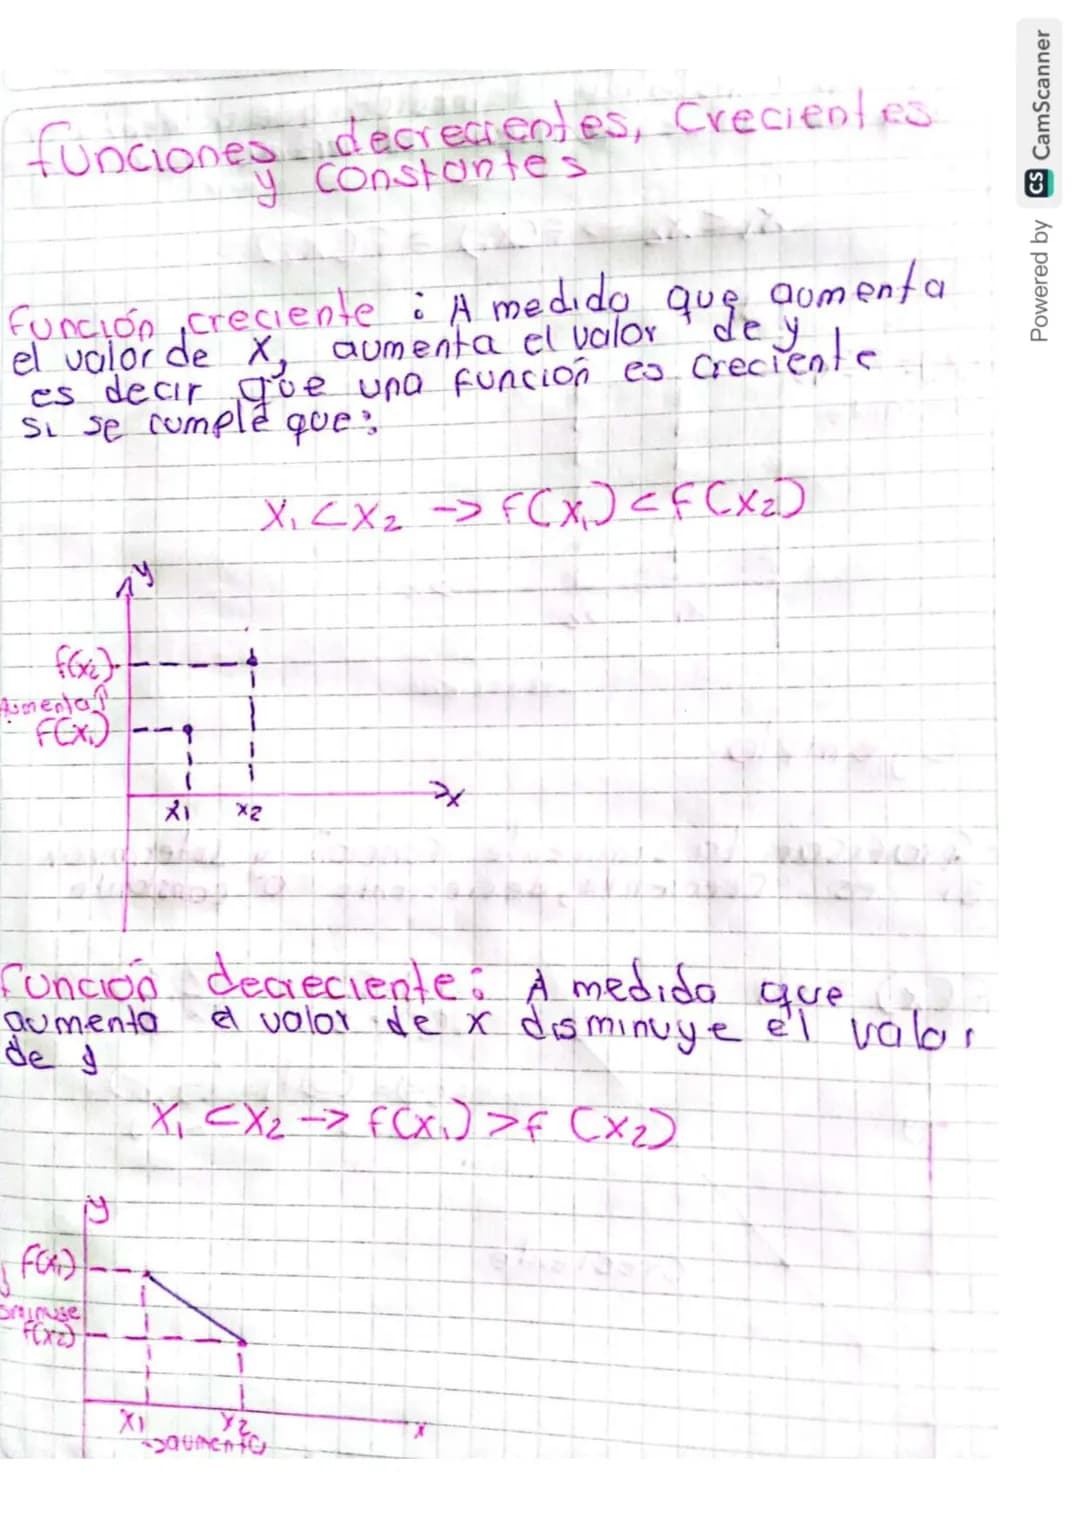 funciones decrecientes, Crecientes
y constantes
Función creciente : A medida que aumenta
el valor de x, aumenta el valor de y
es decir que una función es creciente
si se cumple que:
x₁ < x₂ -> f(x₁) < f(x₂)
y
f(x₂)
Aumenta↑
f(x₁)
x
x1 x2
Función decreciente: A medida que
aumenta el valor de x disminuye el valor
de y
x₁ < x₂ -> f(x₁) > f(x₂)
y
f(x₁)
f(x₂)
x1 x2 x
->aumenta
Powered by CS CamScanner